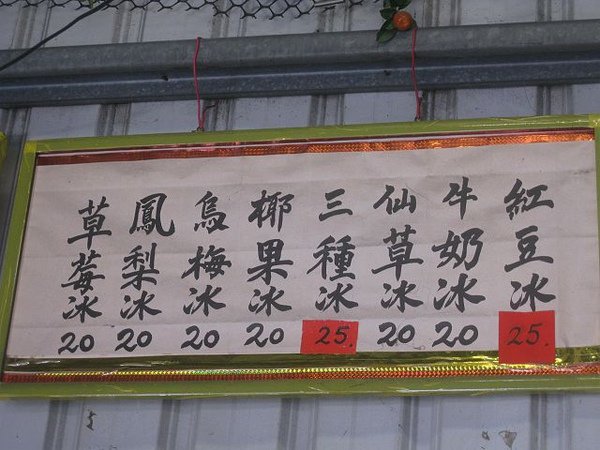 紅豆冰 25.
牛奶冰 20
仙草冰 20
三種冰 25.
椰果冰 20
烏梅冰 20
鳳梨冰 20
草莓冰 20